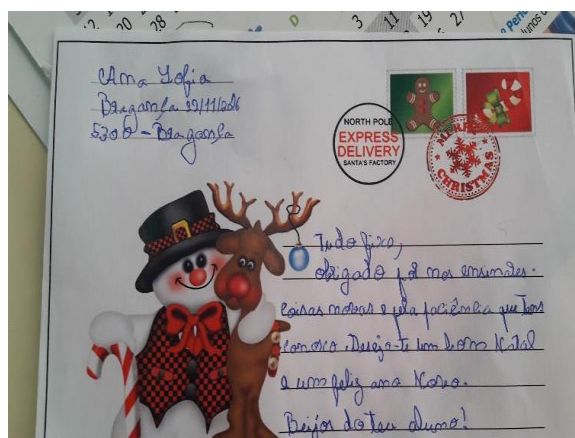 12 20 28
D
3 11 19 27
Ana Sofia
Bragança 22/11/2016
5300 - Bragança
NORTH POLE
EXPRESS
DELIVERY
SANTA'S FACTORY
MERRY
CHRISTMAS
Tudo fixo,
obrigado por nos ensinares
coisas novas e pela paciência que tens
conosco. Desejo-te um bom Natal
e um feliz ano Novo.
Beijos do teu aluno!